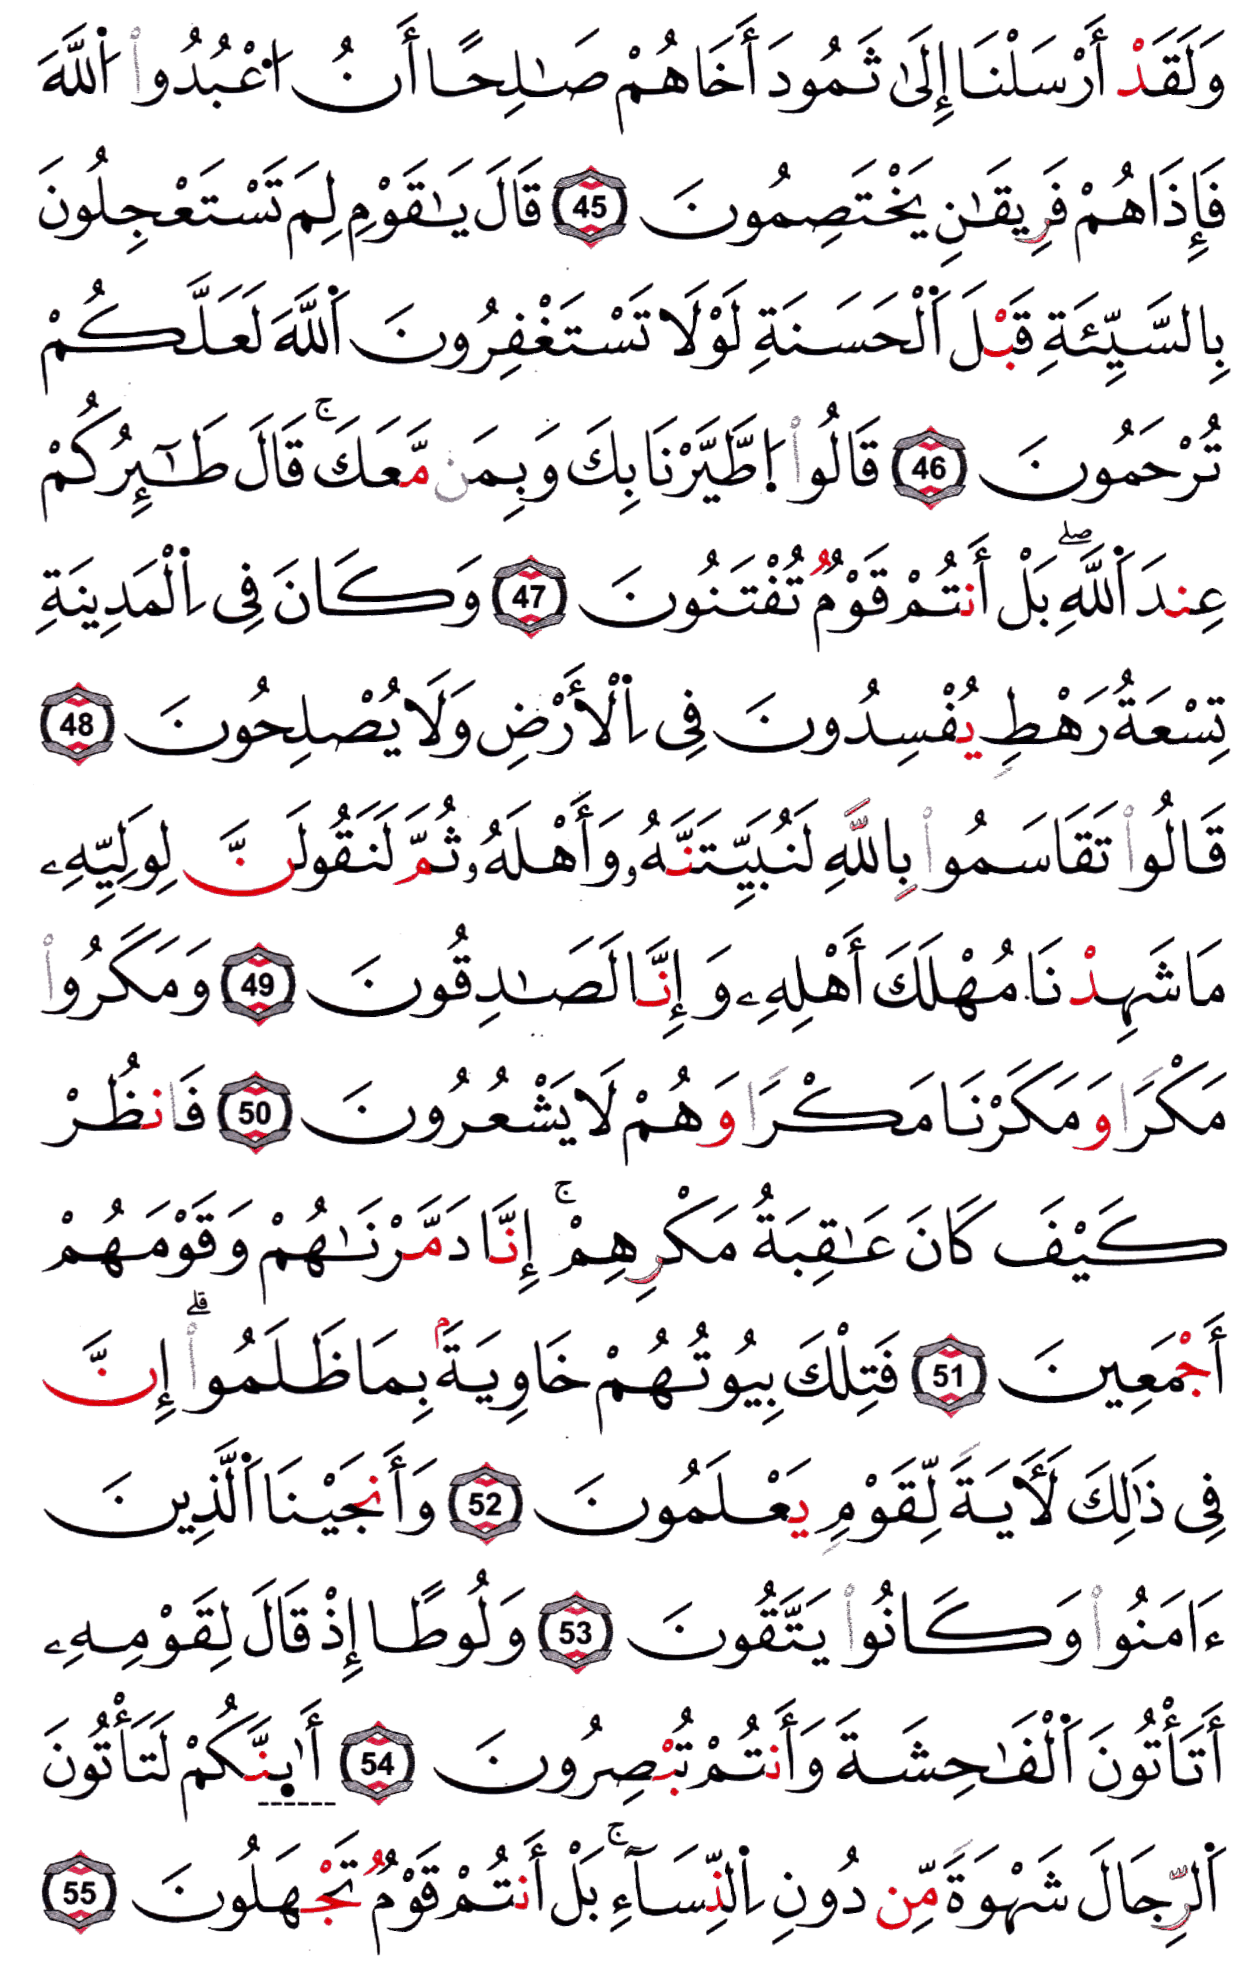 وَلَقَدْ أَرْسَلْنَا إِلَىٰ ثَمُودَ أَخَاهُمْ صَٰلِحًا أَنُ اعْبُدُواْ اللَّهَ
فَإِذَا هُمْ فَرِيقَٰنِ يَخْتَصِمُونَ 45 قَالَ يَٰقَوْمِ لِمَ تَسْتَعْجِلُونَ
بِالسَّيِّئَةِ قَبْلَ الْحَسَنَةِ لَوْلَا تَسْتَغْفِرُونَ اللَّهَ لَعَلَّكُمْ
تُرْحَمُونَ 46 قَالُواْ اطَّيَّرْنَا بِكَ وَبِمَن مَّعَكَ ۚ قَالَ طَٰٓئِرُكُمْ
عِندَ اللَّهِ ۖ بَلْ أَنتُمْ قَوْمٌ تُفْتَنُونَ 47 وَكَانَ فِي الْمَدِينَةِ
تِسْعَةُ رَهْطٍ يُفْسِدُونَ فِي الْأَرْضِ وَلَا يُصْلِحُونَ 48
قَالُواْ تَقَاسَمُواْ بِاللَّهِ لَنُبَيِّتَنَّهُۥ وَأَهْلَهُۥ ثُمَّ لَنَقُولَنَّ لِوَلِيِّهِۦ
مَا شَهِدْنَا مُهْلَكَ أَهْلِهِۦ وَإِنَّا لَصَٰدِقُونَ 49 وَمَكَرُواْ
مَكْرًا وَمَكَرْنَا مَكْرًا وَهُمْ لَا يَشْعُرُونَ 50 فَانظُرْ
كَيْفَ كَانَ عَٰقِبَةُ مَكْرِهِمْ ۚ إِنَّا دَمَّرْنَٰهُمْ وَقَوْمَهُمْ
أَجْمَعِينَ 51 فَتِلْكَ بِيُوتُهُمْ خَاوِيَةَۢ بِمَا ظَلَمُواْ ۗ إِنَّ
فِي ذَٰلِكَ لَأٓيَةً لِّقَوْمٍ يَعْلَمُونَ 52 وَأَنجَيْنَا الَّذِينَ
ءَامَنُواْ وَكَانُواْ يَتَّقُونَ 53 وَلُوطًا إِذْ قَالَ لِقَوْمِهِۦ
أَتَأْتُونَ الْفَٰحِشَةَ وَأَنتُمْ تُبْصِرُونَ 54 أَٰىِٕنَّكُمْ لَتَأْتُونَ
الرِّجَالَ شَهْوَةً مِّن دُونِ النِّسَآءِ ۚ بَلْ أَنتُمْ قَوْمٌ تَجْهَلُونَ 55